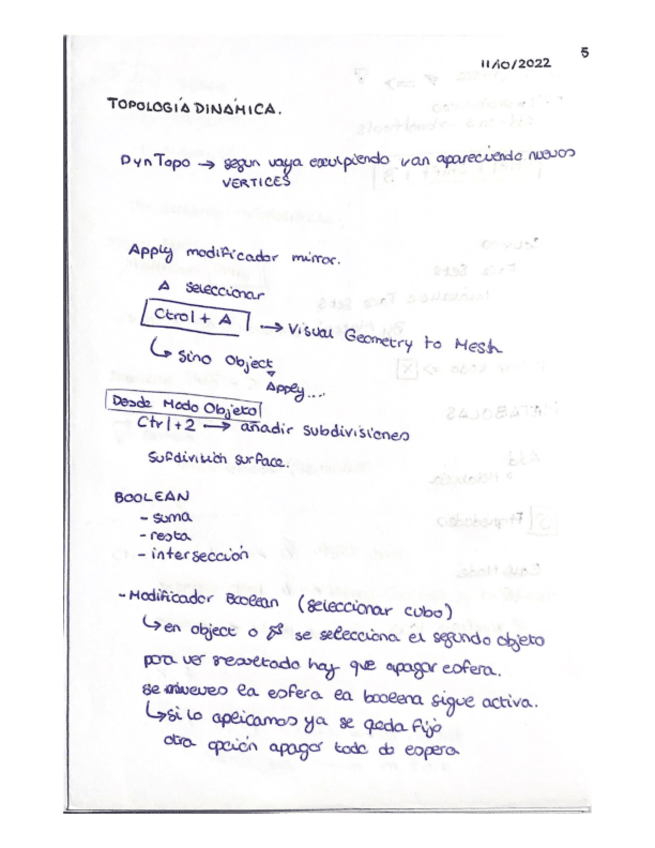 5
11/10/2022
TOPOLOGÍA DINÁMICA.
DynTopo → segun vaya esculpiendo van apareciendo nuevos
VERTICES
Apply modificador mirror.
A seleccionar
Ctrol + A → Visual Geometry to Mesh
↳ Sino Object
Apply....
Desde Modo Objeto
Ctrl+2 → añadir subdivisiones
Sufdivision surface.
BOOLEAN
- suma
- resta
- intersección
- Modificador Boolean (seleccionar cubo)
↳ en object o se selecciona el segundo objeto
para ver resultado hay que apagar esfera.
Se mueves la esfera la booleana sigue activa.
↳ si lo aplicamos ya se queda fijo
otra opción apagar todo